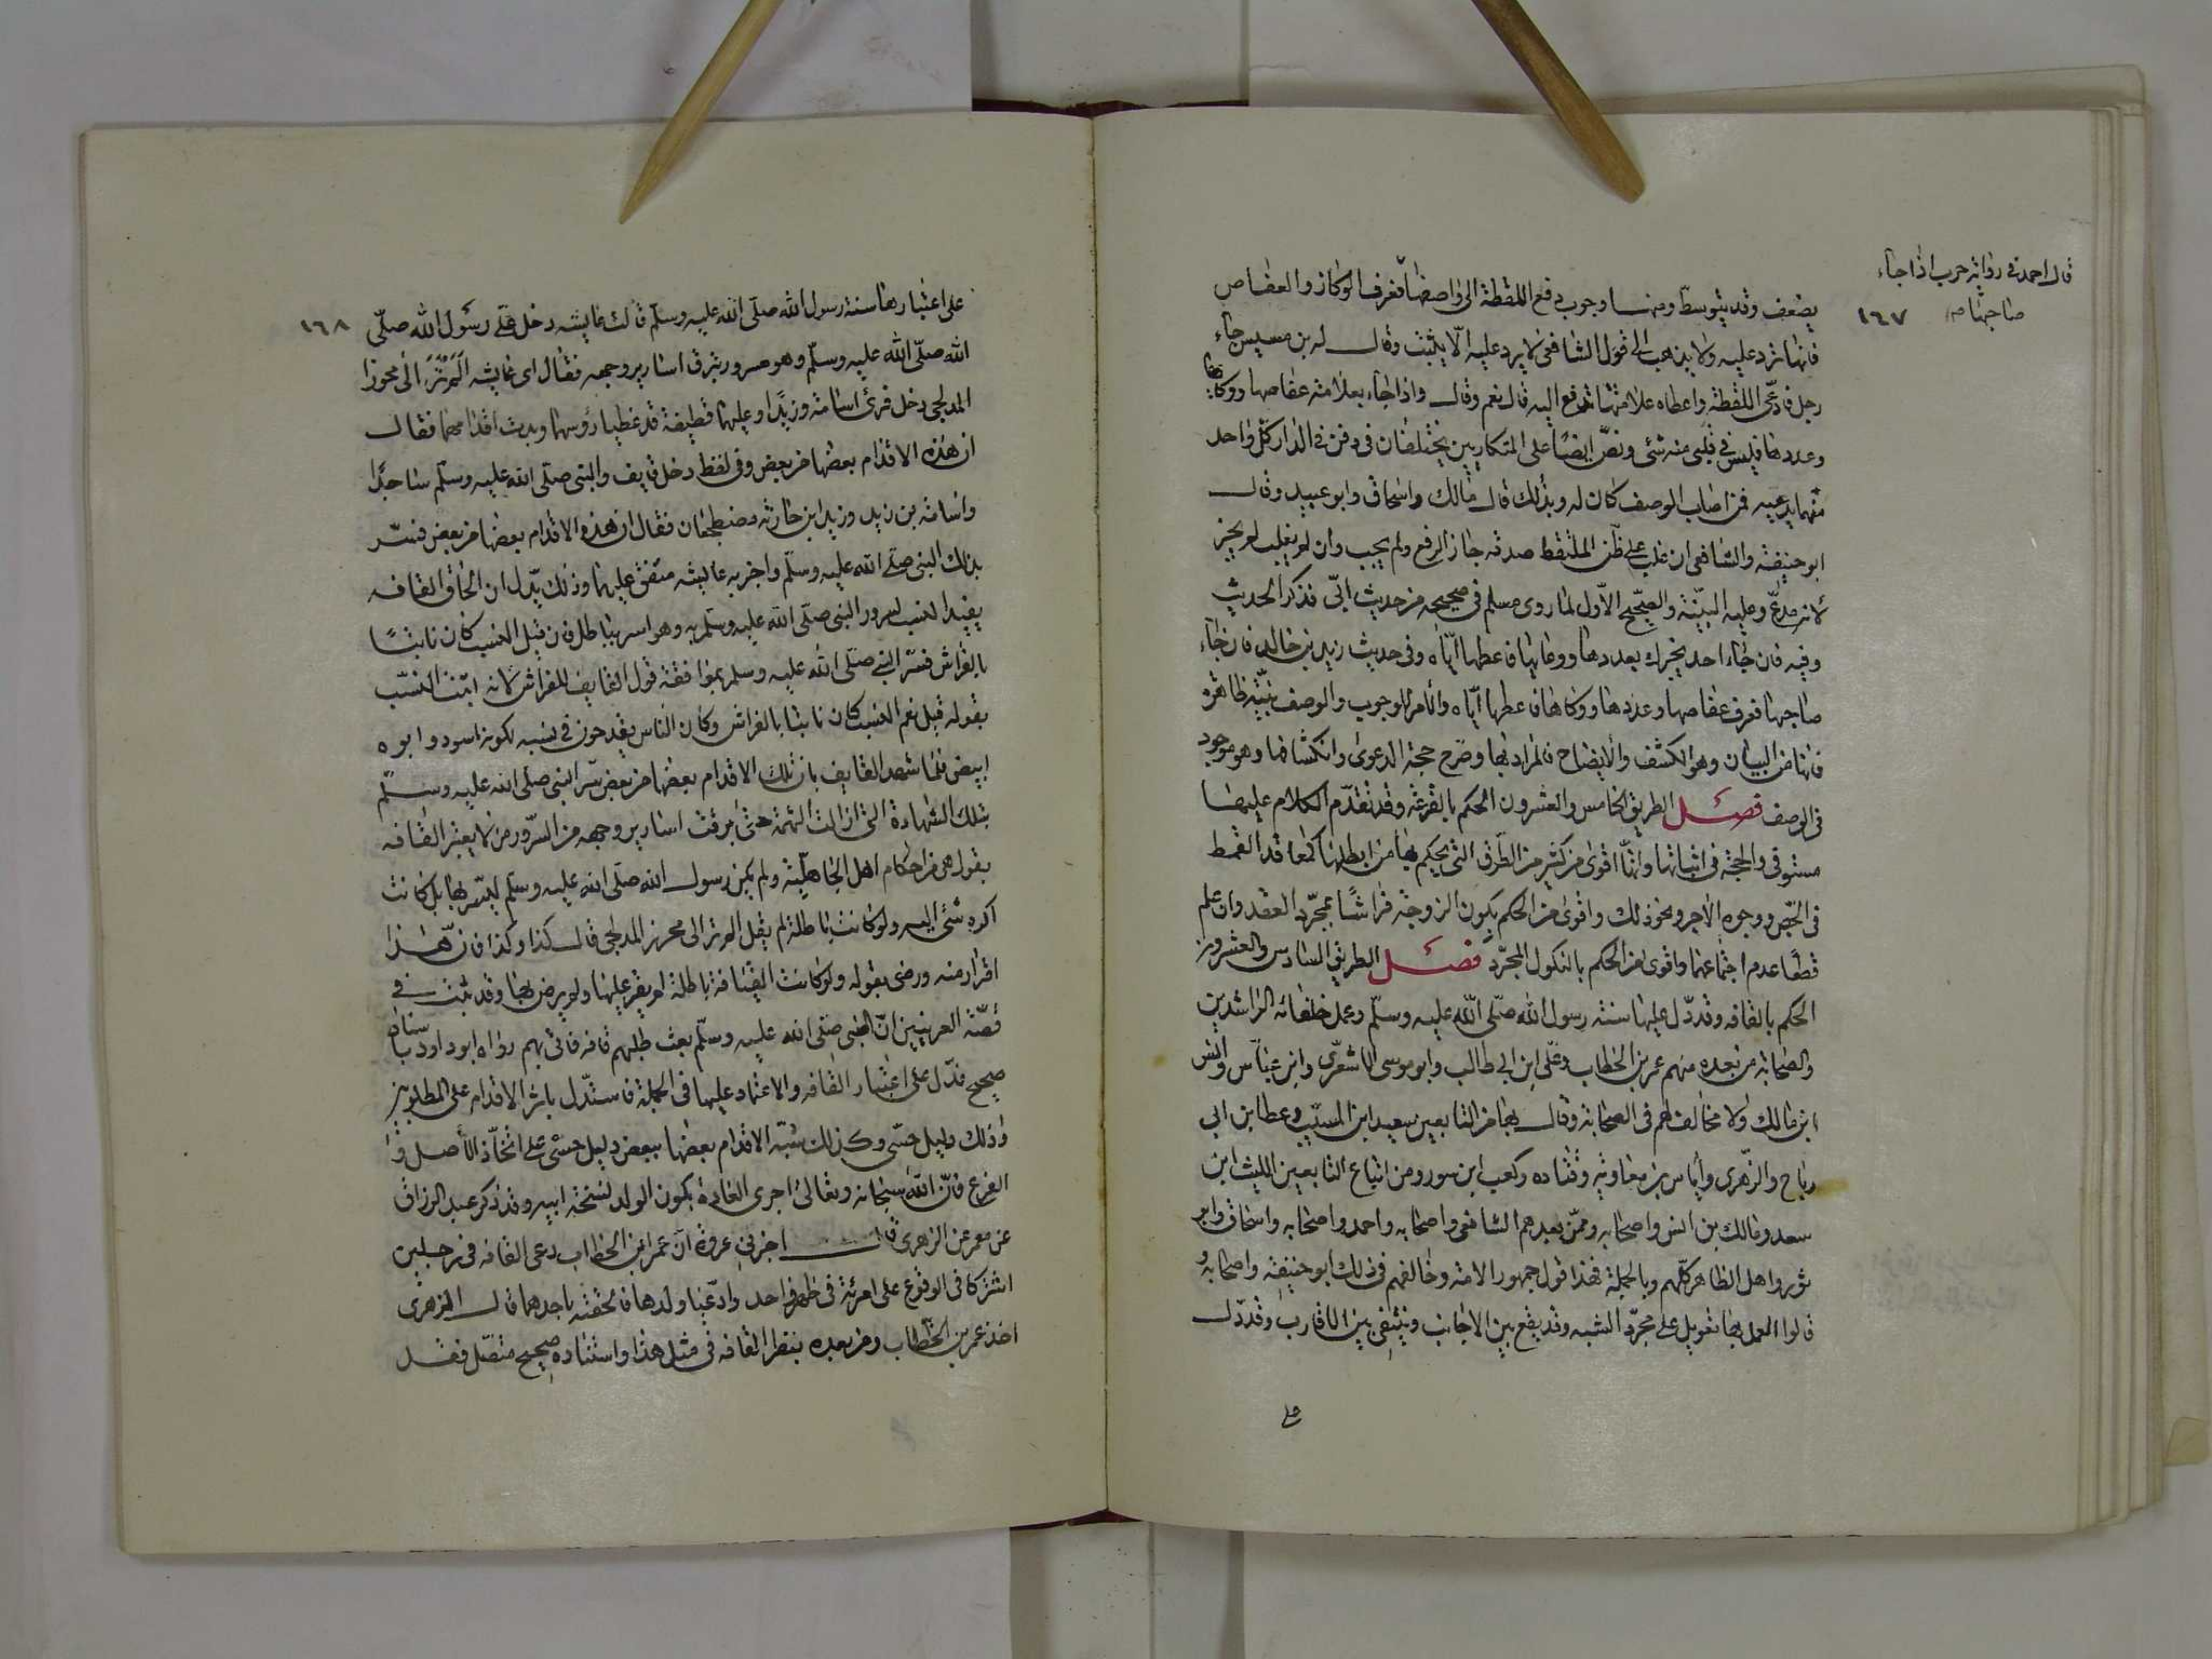 قال احمد في رواية حرب اذا جاء
صاحبها صح
١٦٧
يضعف وقد يتوسط ومنها وجوب دفع اللقطة الى واصفها فعرف الوكاز والعفاص
فانها ترد عليه ولا يذهب الى قول الشافعي لا يرد عليه الا يثبت وقال له بن مسيس جاء
رجل فادعى اللقطة واعطاه علامتها تدفع اليه قال نعم وقال واذا جاء بعلامته عفاصها ووكائها
وعددها فليس في قلبي منه شئ ونص ايضا على المتكاريين يختلفان في دفن في الدار كل واحد
منهما يدعيه فمن اصاب الوصف كان له وبذلك قال مالك واسحاق وابو عبيد وقال
ابو حنيفة والشافعي ان غلب على ظن الملتقط صدقه جاز الرفع ولم يجب وان لم يغلب لم يجز
لانه مدع وعليه البينة والصحيح الاول لما روى مسلم في صحيحه من حديث ابي فذكر الحديث
وفيه فان جاء احد يخبرك بعددها ووعائها فاعطها اياه وفي حديث زيد بن خالد فان جاء
صاحبها فعرف عفاصها وعددها ووكاها فاعطها اياه والامر للوجوب والوصف بينة ظاهرة
فانها من البيان وهو الكشف والايضاح فالمراد بها وضح حجة الدعوى وانكشافها وهو موجود
في الوصف فصل الطريق الخامس والعشرون الحكم بالقرعة وقد تقدم الكلام عليها
مستوفى والحجة في اثباتها وانها اقوى من كثير من الطرق التي يحكم بها من ابطلها كمعاقد القمط
في الخص ووجوه الاجر ونحو ذلك واقوى من الحكم بكون الزوجة فراشا بمجرد العقد وان علم
قطعا عدم اجتماعهما واقوى من الحكم بالنكول المجرد فصل الطريق السادس والعشرون
الحكم بالقافه وقد دل عليها سنة رسول الله صلى الله عليه وسلم وعمل خلفائه الراشدين
والصحابة من بعده منهم عمر بن الخطاب وعلى ابن ابي طالب وابو موسى الاشعرى وابن عباس وانس
ابن مالك ولا مخالف لهم في الصحابة وقال بها من التابعين سعيد ابن المسيب وعطا بن ابي
رباح والزهرى واياس بن معاوية وقتاده وكعب ابن سور ومن اتباع التابعين الليث ابن
سعد ومالك بن انس واصحابه وممن بعدهم الشافعي واصحابه واحمد واصحابه واسحاق وابو
ثور واهل الظاهر كلهم وبالجملة فهذا قول جمهور الامة وخالفهم في ذلك ابو حنيفة واصحابه و
قالوا العمل بها تعويل على مجرد الشبه وقد يقع بين الاجانب وينتفى بين الاقارب وقد دل
على
١٦٨
على اعتبارها سنة رسول الله صلى الله عليه وسلم قالت عايشه دخل على رسول الله صلى
الله صلى الله عليه وسلم وهو مسرور تبرق اسارير وجهه فقال اى عايشه الم تر الى محززا
المدلجى دخل فرئ اسامة وزيدا وعليهما قطيفة قد غطيا رؤسهما وبدت اقدامهما فقال
ان هذه الاقدام بعضها من بعض وفى لفظ دخل قايف والنبى صلى الله عليه وسلم ساجدا
واسامة بن زيد وزيد ابن حارثه مضطجعان فقال ان هذه الاقدام بعضها من بعض فسر
بذلك النبى صلى الله عليه وسلم واخبر به عايشه متفق عليهما وذلك يدل ان الحاق القافه
يفيد النسب لسرور النبى صلى الله عليه وسلم به وهو لا يسر بباطل فان قيل النسب كان ثابتا
بالفراش فسر النبى صلى الله عليه وسلم بموافقة قول القايف للفراش لانه اثبت النسب
بقوله قيل نعم النسب كان ثابتا بالفراش وكان الناس يقدحون في نسبه لكونه اسود وابوه
ابيض فلما شهد القايف بان تلك الاقدام بعضها من بعض سر النبى صلى الله عليه وسلم
بتلك الشهادة التى ازالت التهمة حتى برقت اسارير وجهه من السرور ومن لا يعتبر القافه
بقول هى من احكام اهل الجاهلية ولم يكن رسول الله صلى الله عليه وسلم ليسر بها بل كانت
اكره شئ اليه ولو كانت باطلة لم يقل الم تر الى محرز المدلجى قال كذا وكذا فان هذا
اقرار منه ورضى بقوله ولو كانت القيافة باطلة لم يقر عليها ولم يرض بها وقد ثبت في
قصة العرنيين ان النبى صلى الله عليه وسلم بعث طلبهم قافه فاتى بهم رواه ابو داود باسناد
صحيح فدل على اعتبار القافه والاعتماد عليها فى الجملة فاستدل باثر الاقدام على المطلوبين
وذلك دليل حسى وكذلك شبه الاقدام بعضها ببعض دليل حسى على اتخاذ الاصل و
الفرع فان الله سبحانه وتعالى اجرى العادة بكون الولد نسخة ابيه وقد ذكر عبد الرزاق
عن معمر عن الزهرى قال اخبرنى عروة ان عمر ابن الخطاب دعى القافه في رجلين
اشتركا في الوقوع على امرئة في طهر واحد وادعيا ولدها فالحقته باحدهما قال الزهرى
اخذ عمر بن الخطاب ومن بعده بنظر القافه في مثل هذا واسناده صحيح متصل فقل